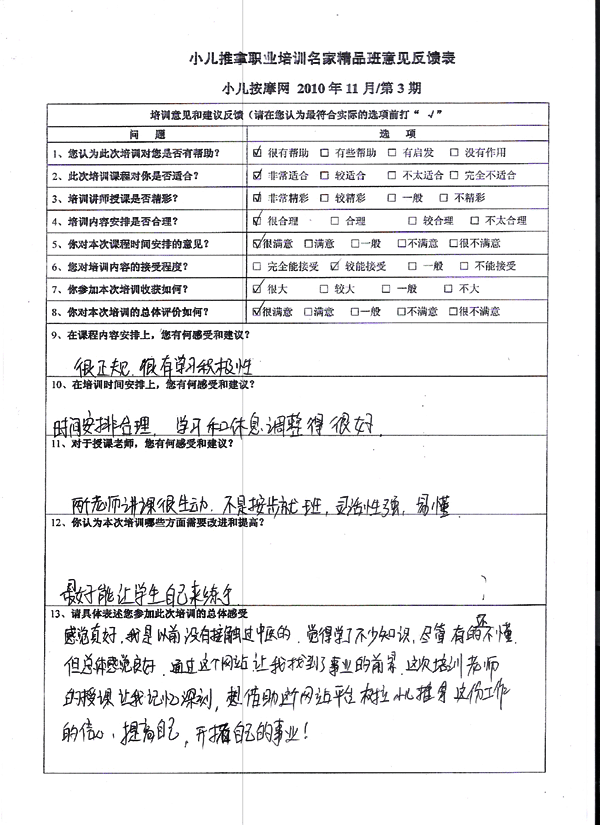 小儿推拿职业培训名家精品班意见反馈表
小儿按摩网 2010 年 11 月/第 3 期
培训意见和建议反馈（请在您认为最符合实际的选项前打“ √ ”
问 题 选 项
1、您认为此次培训对您是否有帮助？ ☑ 很有帮助 □ 有些帮助 □ 有启发 □ 没有作用
2、此次培训课程对你是否适合？ ☑ 非常适合 □ 较适合 □ 不太适合 □ 完全不适合
3、培训讲师授课是否精彩？ ☑ 非常精彩 □ 较精彩 □ 一般 □ 不精彩
4、培训内容安排是否合理？ ☑ 很合理 □ 合理 □ 较合理 □ 不太合理
5、你对本次课程时间安排的意见？ ☑很满意 □满意 □一般 □不满意 □很不满意
6、您对培训内容的接受程度？ □ 完全能接受 ☑ 较能接受 □ 一般 □ 不能接受
7、你参加本次培训收获如何？ ☑ 很大 □ 较大 □ 一般 □ 不大
8、你对本次培训的总体评价如何？ ☑很满意 □满意 □一般 □不满意 □很不满意
9、在课程内容安排上，您有何感受和建议？
很正规.很有学习积极性
10、在培训时间安排上，您有何感受和建议？
时间安排合理. 学习和休息调整得很好.
11、对于授课老师，您有何感受和建议？
两老师讲课很生动.不是按步就班，灵活性强，易懂.
12、你认为本次培训哪些方面需要改进和提高？
最好能让学生自己来练手
13、请具体表述您参加此次培训的总体感受
感觉真好，我是以前没有接触过中医的.觉得学了不少知识，尽管有的还不懂.
但总体感觉良好.通过这个网站让我找到了事业的前景.这次培训老师
的授课让我记忆深刻，想借助这个网站平台树立小儿推拿这份工作
的信心、提高自己，开拓自己的事业！